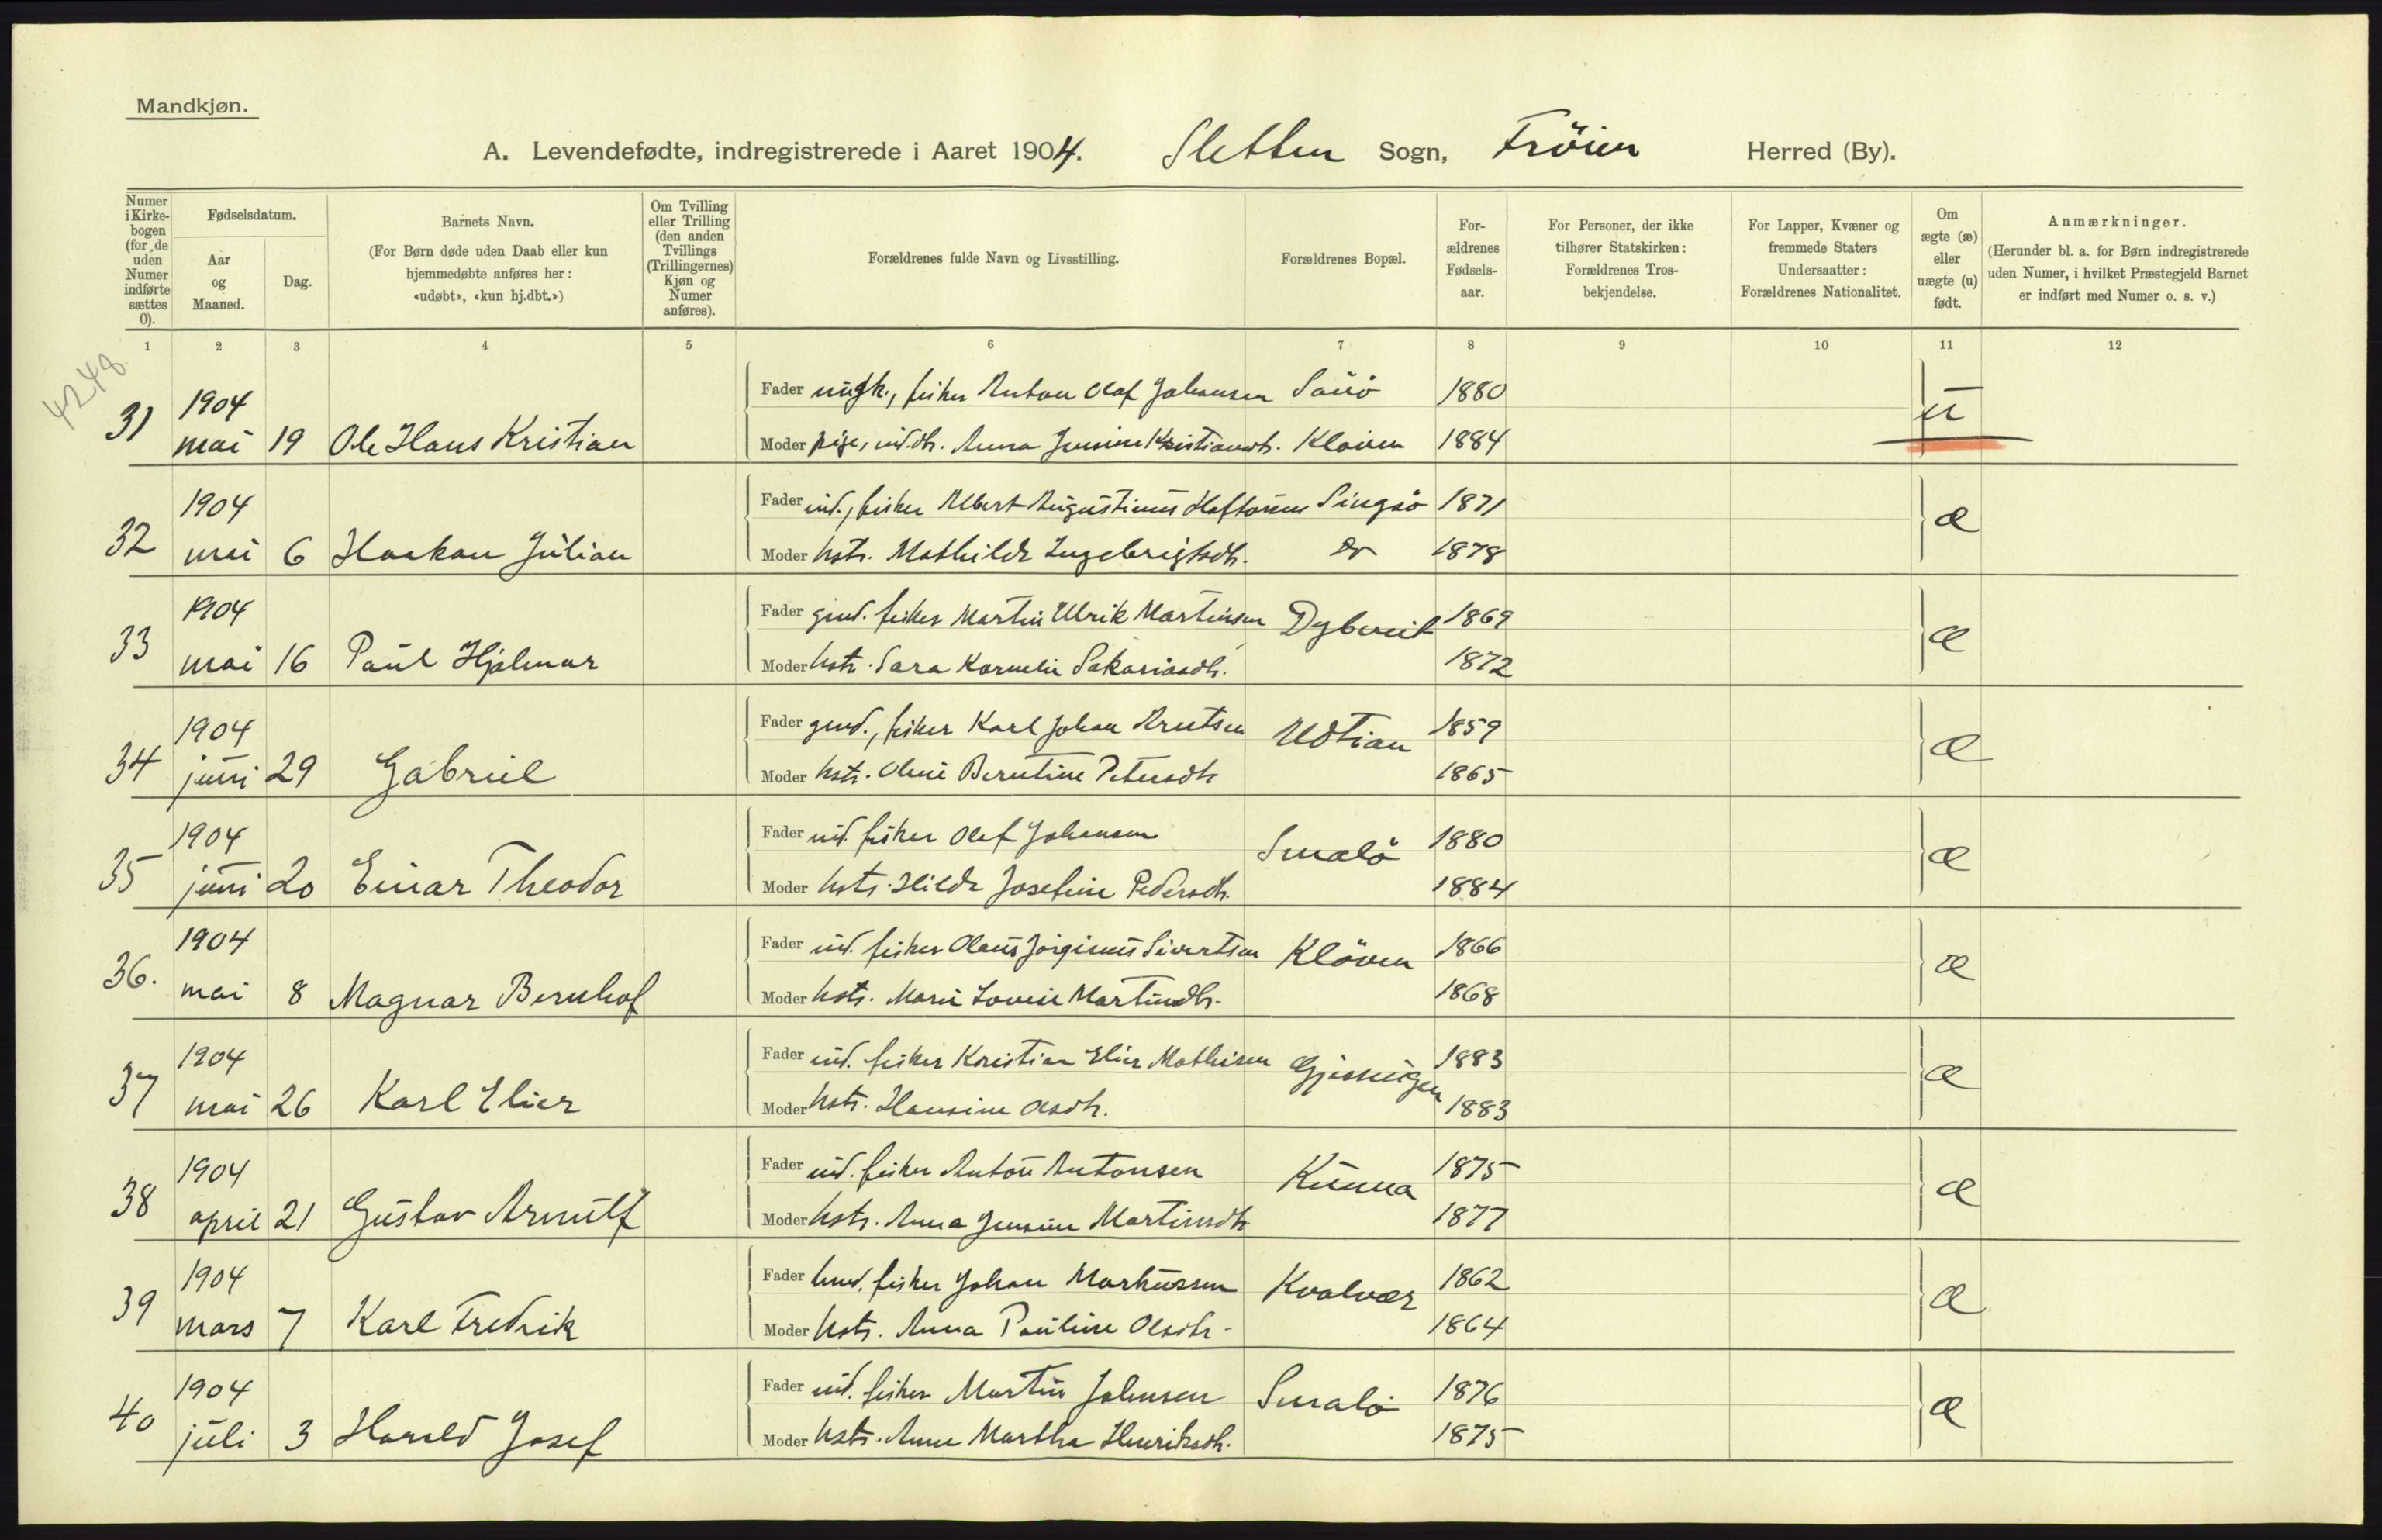 Mandkjøn.
A. Levendefødte, indregistrerede i Aaret 1904. Sletten Sogn, Fröien Herred (By).
Numer i Kirkebogen (for de uden Numer indførte sættes 0).
Fødselsdatum.
Aar og Maaned.
Dag.
Barnets Navn.
(For Børn døde uden Daab eller kun hjemmedøbte anføres her: «udøbt», «kun hj.dbt.»)
Om Tvilling eller Trilling (den anden Tvillings (Trillingernes) Kjøn og Numer anføres).
Forældrenes fulde Navn og Livsstilling.
Forældrenes Bopæl.
Forældrenes Fødselsaar.
For Personer, der ikke tilhører Statskirken: Forældrenes Trosbekjendelse.
For Lapper, Kvæner og fremmede Staters Undersaatter: Forældrenes Nationalitet.
Om ægte (æ) eller uægte (u) født.
Anmærkninger.
(Herunder bl. a. for Børn indregistrerede uden Numer, i hvilket Præstegjeld Barnet er indført med Numer o. s. v.)
1 2 3 4 5 6 7 8 9 10 11 12
4248
31 1904 mai 19 Ole Hans Kristian
Fader ungk., fisker Anton Olaf Johansen Sauö 1880 u
Moder pige, ind.dtr. Anna Jensine Kristiansdtr. Klöiven 1884
32 1904 mai 6 Haakon Julian
Fader ind., fisker Albert Augustinus Haftorsen Singsö 1871 æ
Moder hstr. Mathilde Ingebrigtsdtr. Do 1878
33 1904 mai 16 Paul Hjalmar
Fader gmd. fisker Martin Ulrik Martinsen Dybveit 1869 æ
Moder hstr. Sara Kornelie Sakariasdtr. 1872
34 1904 juni 29 Gabriel
Fader gmd., fisker Karl Johan Arntsen Udtian 1859 æ
Moder hstr. Oline Berntine Petersdtr 1865
35 1904 juni 20 Einar Theodor
Fader ind. fisker Olaf Johansen Smalö 1880 æ
Moder hstr. Hilda Josefine Pedersdtr. 1884
36. 1904 mai 8 Magnar Bernhof
Fader ind. fisker Olaus Jörginus Sivertsen Klöven 1866 æ
Moder hstr. Marie Lovise Martinsdtr. 1868
37 1904 mai 26 Karl Elier
Fader ind. fisker Kristian Elier Mathisen Gjæsingen 1883 æ
Moder hstr. Hansine Olsdtr. 1883
38 1904 april 21 Gustav Arnulf
Fader ind. fisker Anton Antonsen Kunna 1875 æ
Moder hstr. Anna Jensine Martinsdtr 1877
39 1904 mars 7 Karl Fredrik
Fader hmd. fisker Johan Markussen Kvalvær 1862 æ
Moder hstr. Anna Pauline Olsdtr. 1864
40 1904 juli 3 Harald Josef
Fader ind. fisker Martin Johnsen Smalö 1876 æ
Moder hstr. Anne Martha Henriksdtr. 1875